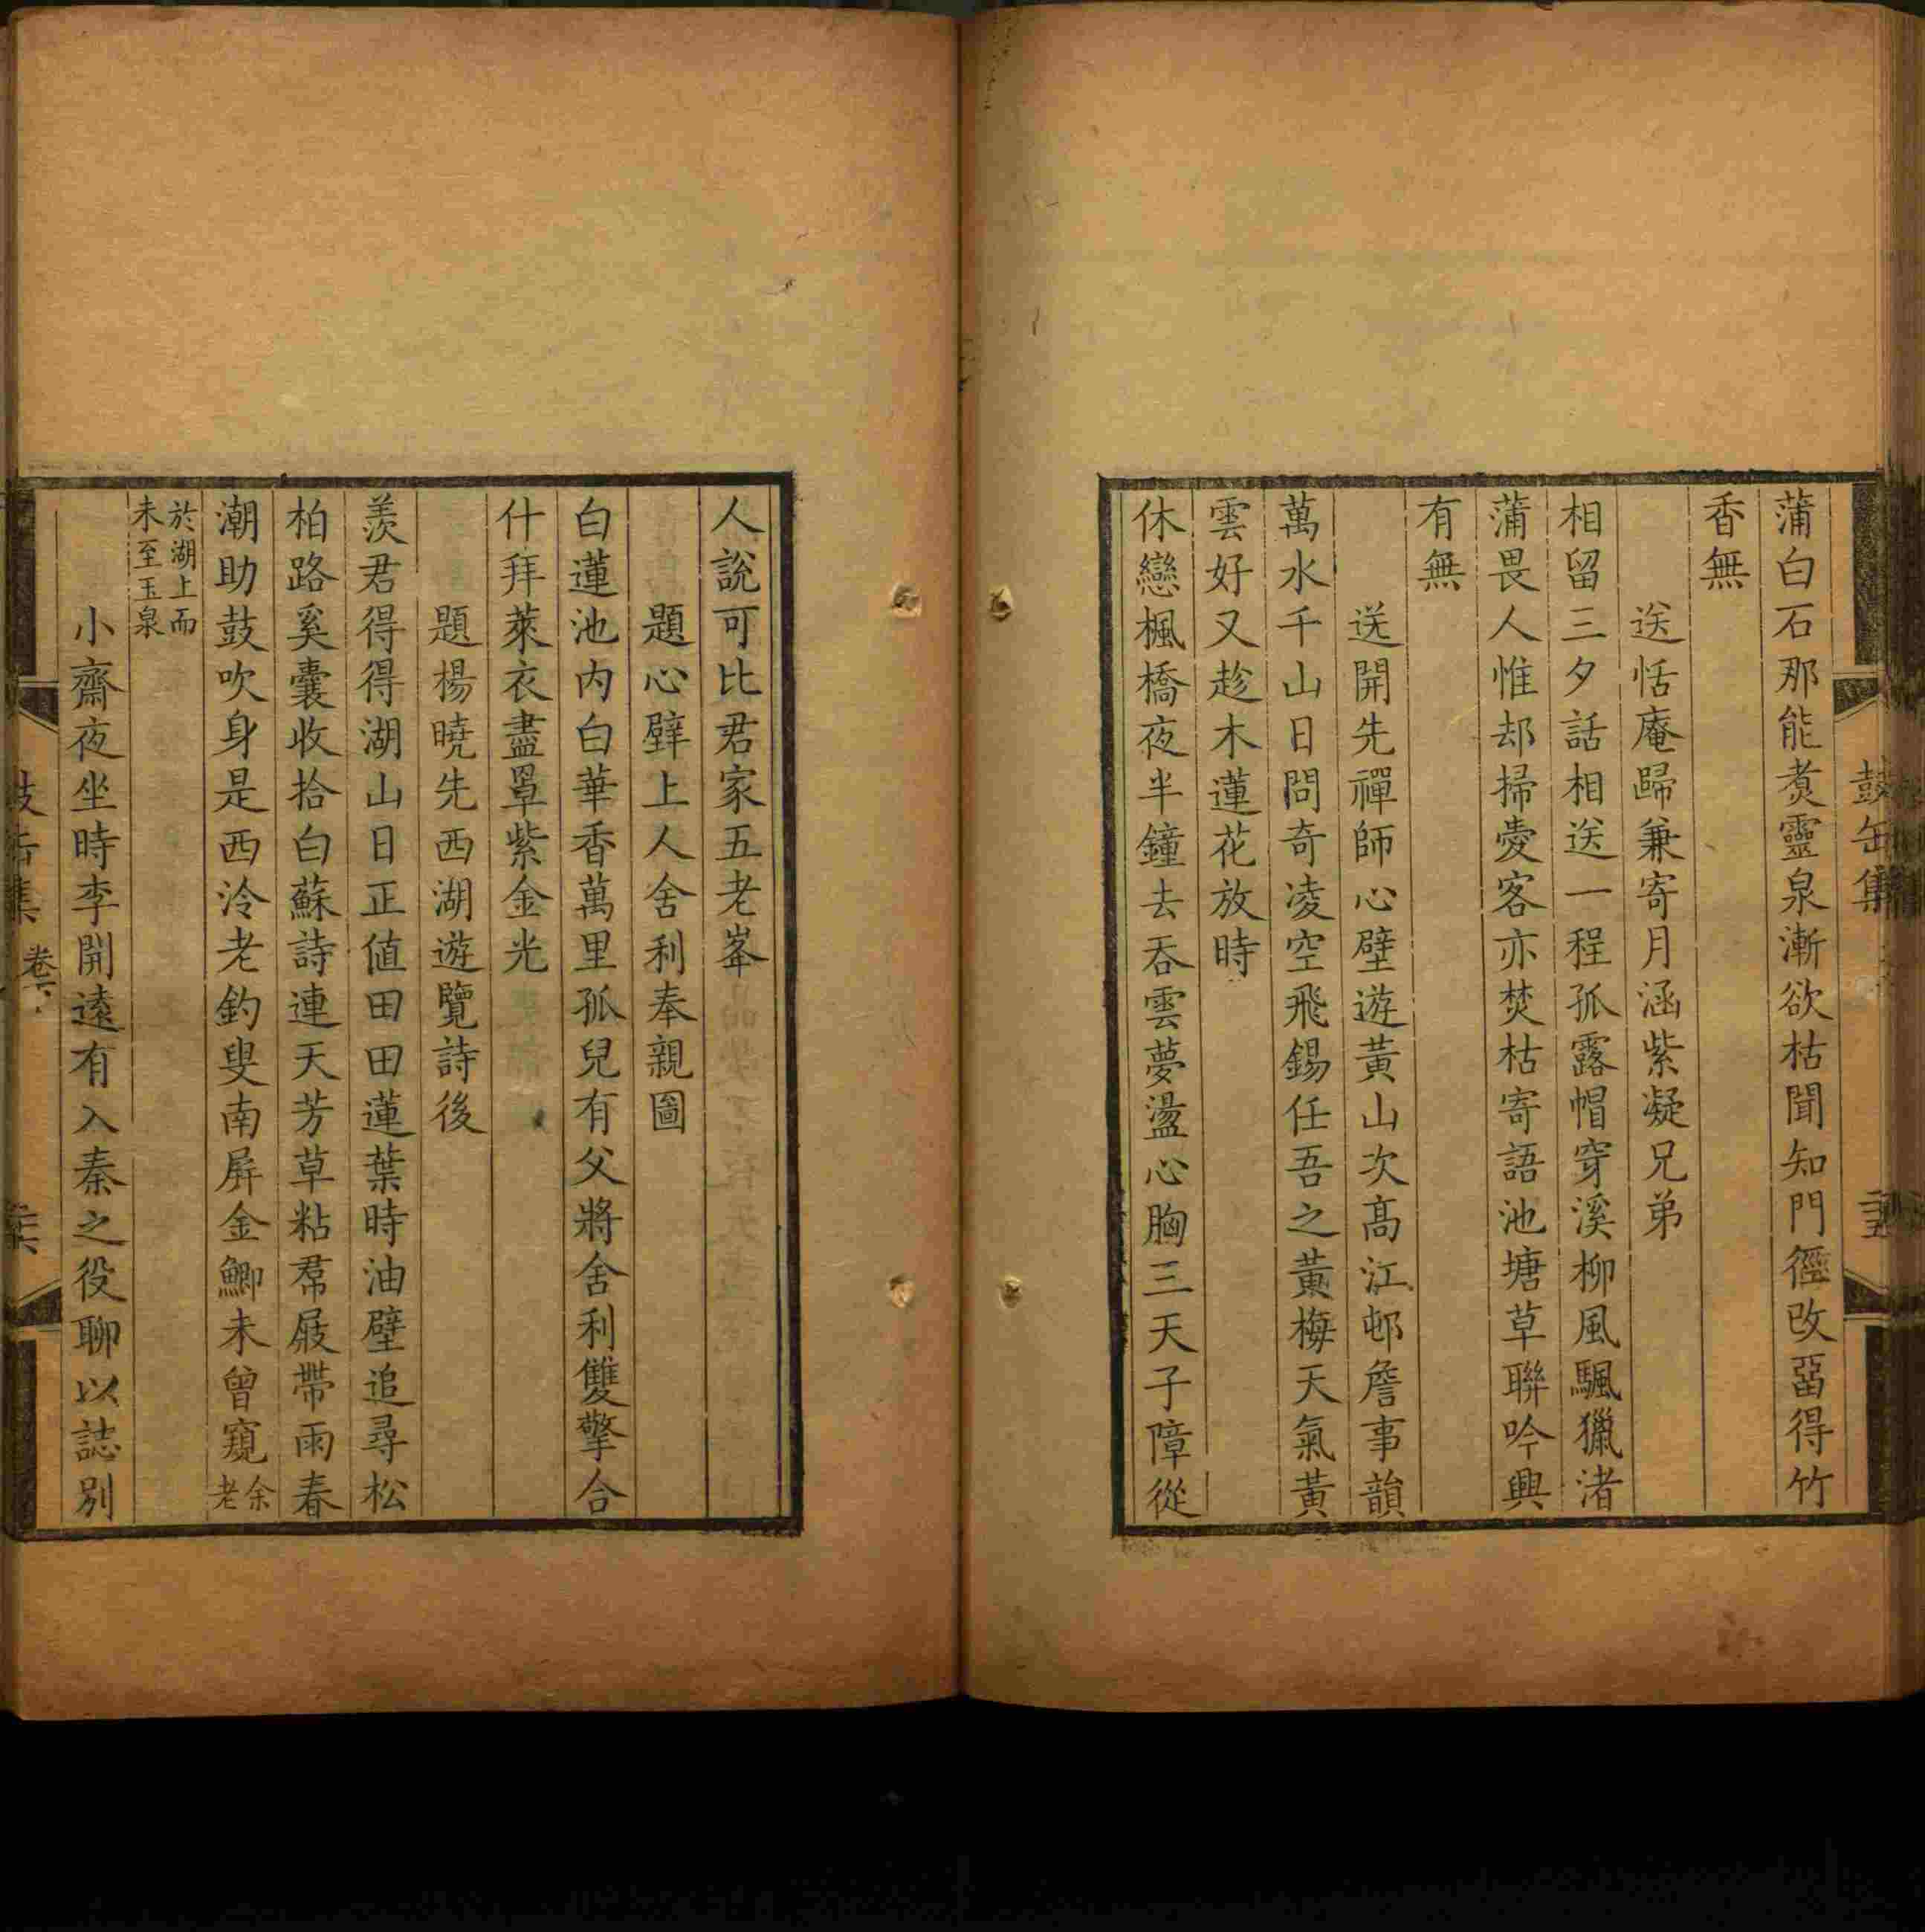 鼓缶集
蒲白石那能煑靈泉漸欲枯聞知門徑改畱得竹
香無
送恬庵歸兼寄月涵紫凝兄弟
相留三夕話相送一程孤露帽穿溪柳風颿獵渚
蒲畏人惟却掃愛客亦焚枯寄語池塘草聯吟興
有無
送開先禪師心壁遊黃山次高江邨詹事韻
萬水千山日問奇凌空飛錫任吾之黃梅天氣黃
雲好又趁木蓮花放時
休戀楓橋夜半鐘去吞雲夢盪心胸三天子障從
人說可比君家五老峯
題心壁上人舍利奉親圖
白蓮池内白華香萬里孤兒有父將舍利雙擎合
什拜萊衣盡罩紫金光
題楊曉先西湖遊覽詩後
羨君得得湖山日正値田田蓮葉時油壁追尋松
柏路奚囊收拾白蘇詩連天芳草粘帬屐帶雨春
潮助鼓吹身是西泠老釣叟南屏金鯽未曾窺余老
於湖上而
未至玉泉
小齋夜坐時李開遠有入秦之役聊以誌別
卷六